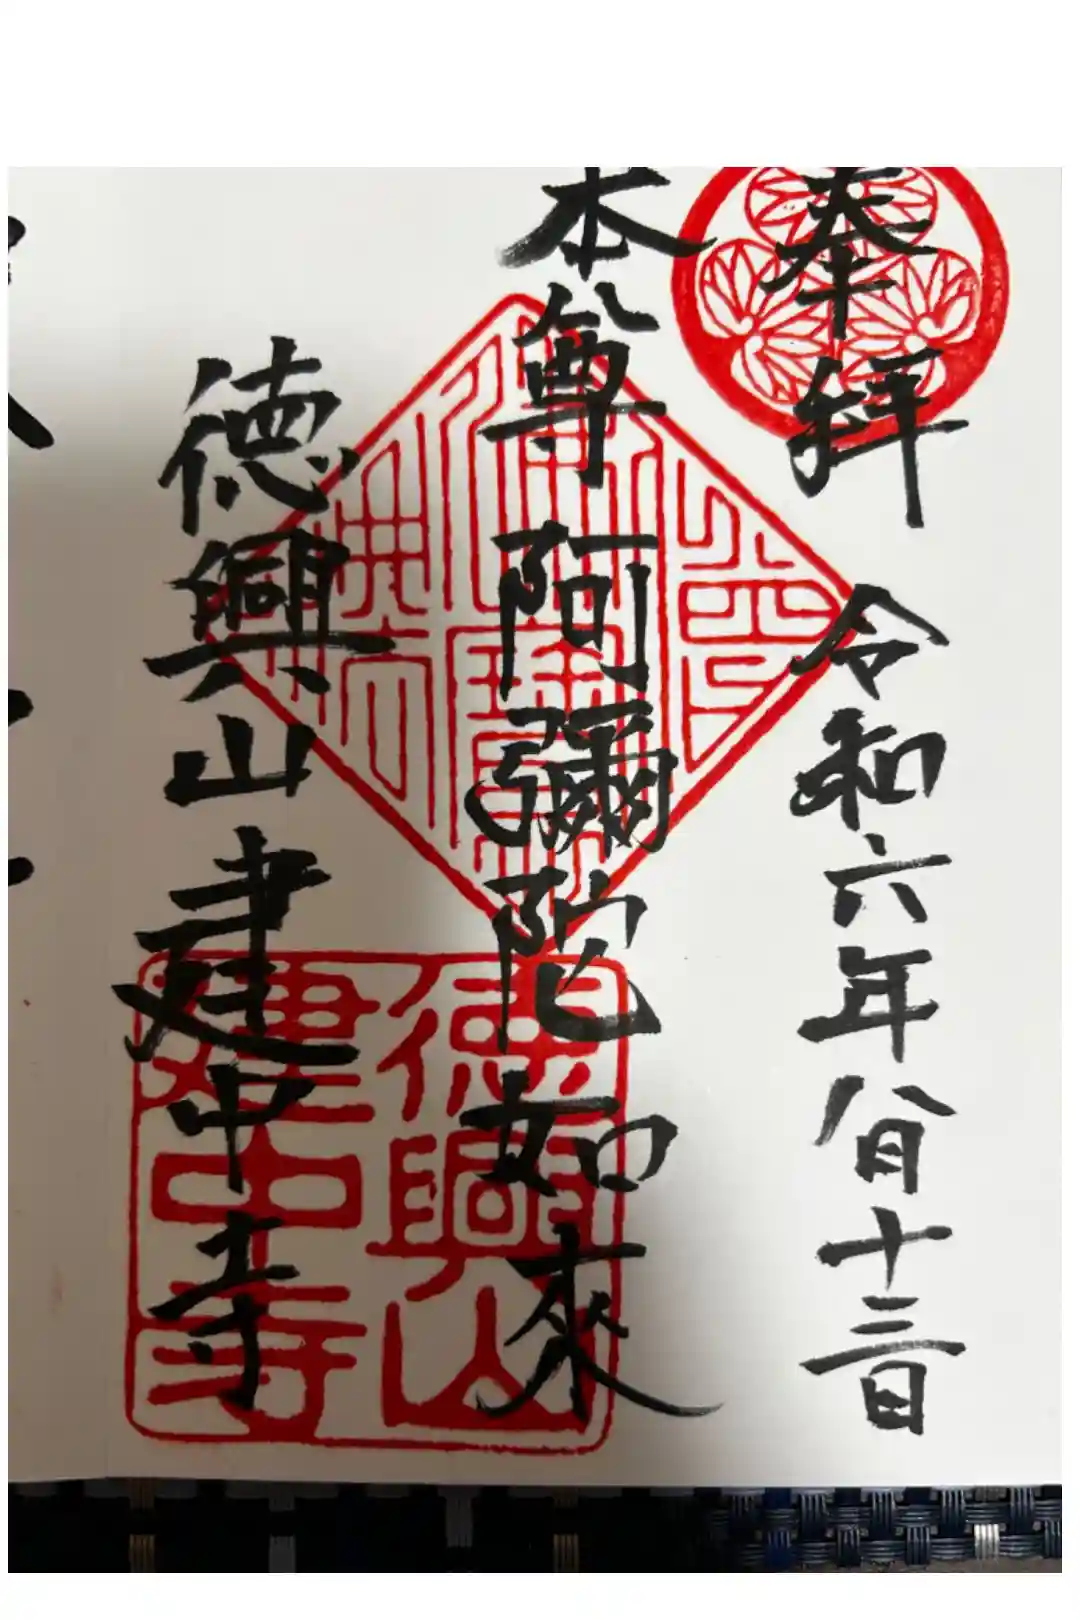 奉拝 令和六年八月十三日
本尊 阿彌陀如來
徳興山建中寺
徳興山
建中寺